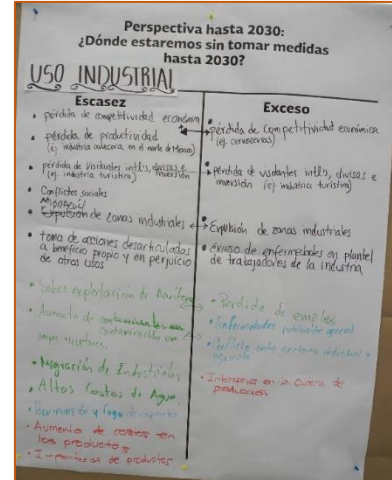 Perspectiva hasta 2030:
¿Dónde estaremos sin tomar medidas
hasta 2030?
USO INDUSTRIAL
Escasez
• pérdida de competitividad económica
• pérdida de productividad
(ej. industria en el norte de México)
• pérdida de visitantes intl's, divisas e
(ej. industria turística) inversión
• Conflictos sociales
Migración
• Expulsión de zonas industriales
• toma de acciones desarticuladas
a beneficio propio y en perjuicio
de otros usos
• Sobre explotación de
• Aumento de
contaminación en
• Migración de Industriales
• Altos Costos de Agua
y fuga de capitales
• Aumento de costos en
los productos
• Importación de productos
Exceso
pérdida de competitividad económica
(ej. cervecerías)
• pérdida de visitantes intl's, divisas e
inversión (ej. industria turística)
• Expulsión de zonas industriales
• exceso de enfermedades en plantel
de trabajadores de la industria
• Pérdida de empleos
• Enfermedades población general
• Conflicto entre sectores industrial y
agrícola
• en la de
producción